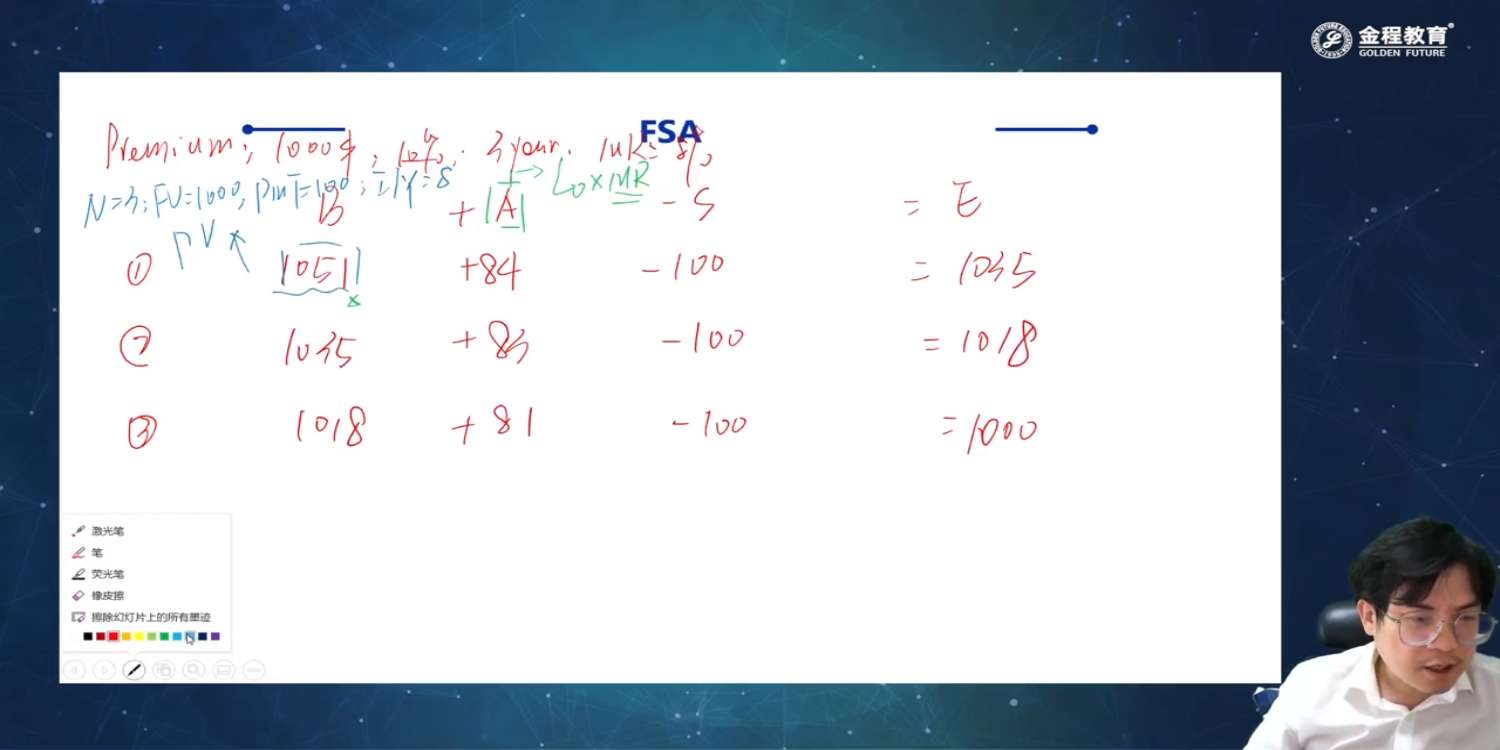 金程教育
GOLDEN FUTURE
FSA
Premium; 1000$; 10%; 3 year. MR: 8%
N=3; FV=1000, PMT=100; I/Y=8
PV
B + A - S = E
L0 × MR
① 1051 +84 -100 = 1035
② 1035 +83 -100 = 1018
③ 1018 +81 -100 = 1000
激光笔
笔
荧光笔
橡皮擦
擦除幻灯片上的所有墨迹